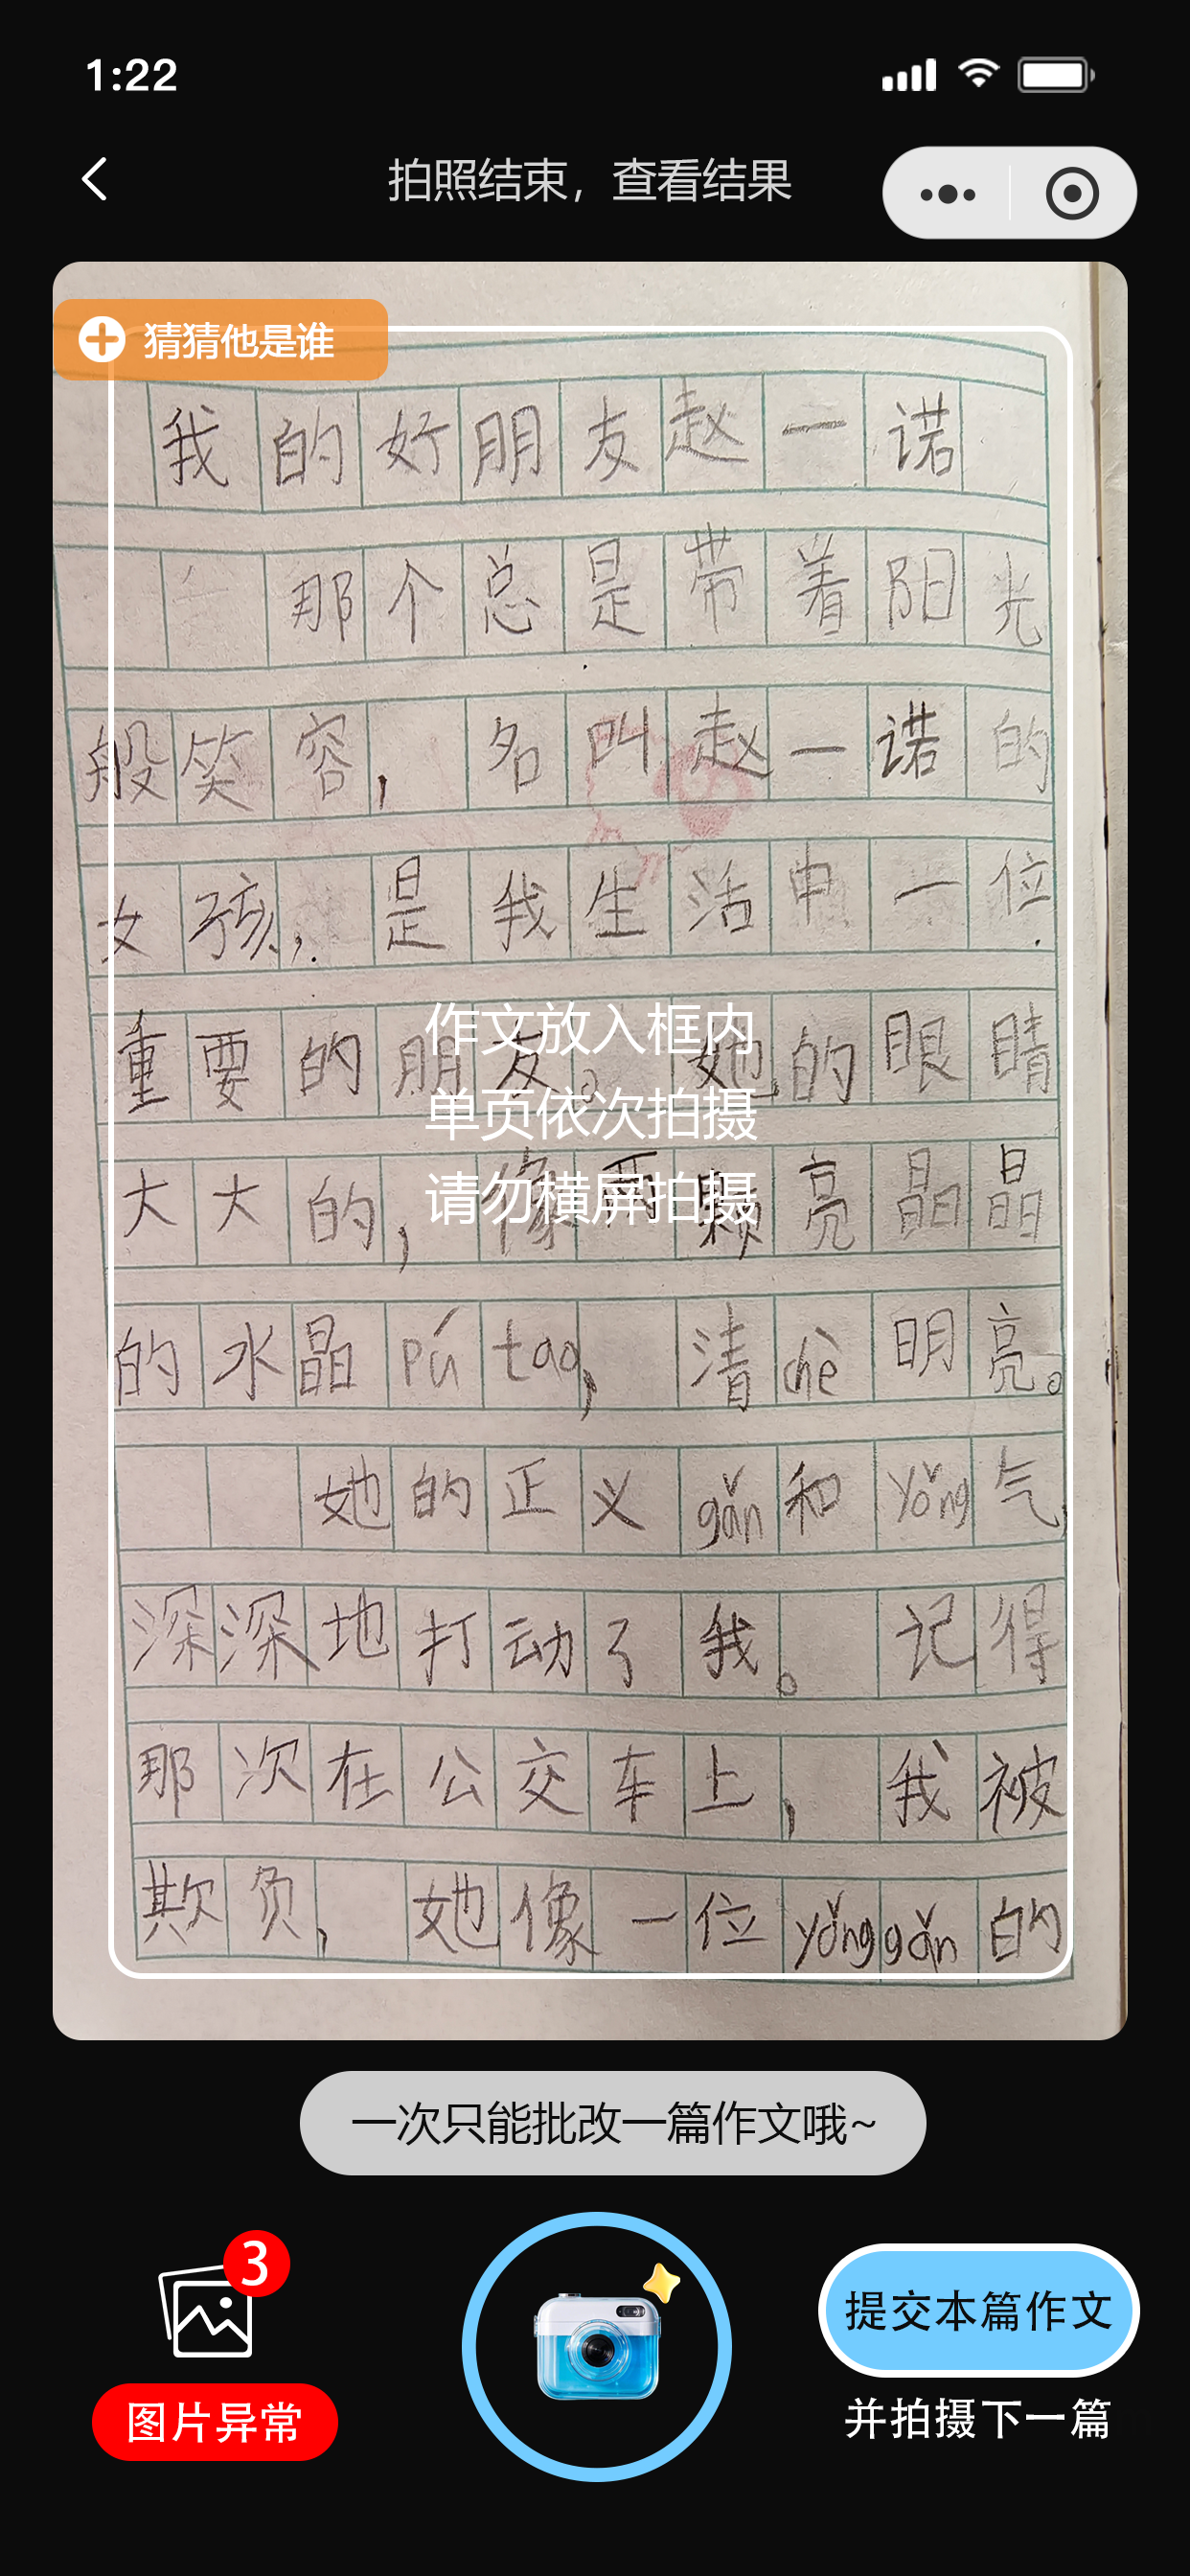 1:22
拍照结束，查看结果
猜猜他是谁
我的好朋友赵一诺
那个总是带着阳光
般笑容，名叫赵一诺的
女孩，是我生活中一位
重要的朋友。她的眼睛
作文放入框内
单页依次拍摄
大大的，像两颗亮晶晶
请勿横屏拍摄
的水晶pú tao，清chè明亮。
她的正义gǎn和yǒng气，
深深地打动了我。记得
那次在公交车上，我被
欺负，她像一位yǒnggǎn的
一次只能批改一篇作文哦~
3
图片异常
提交本篇作文
并拍摄下一篇